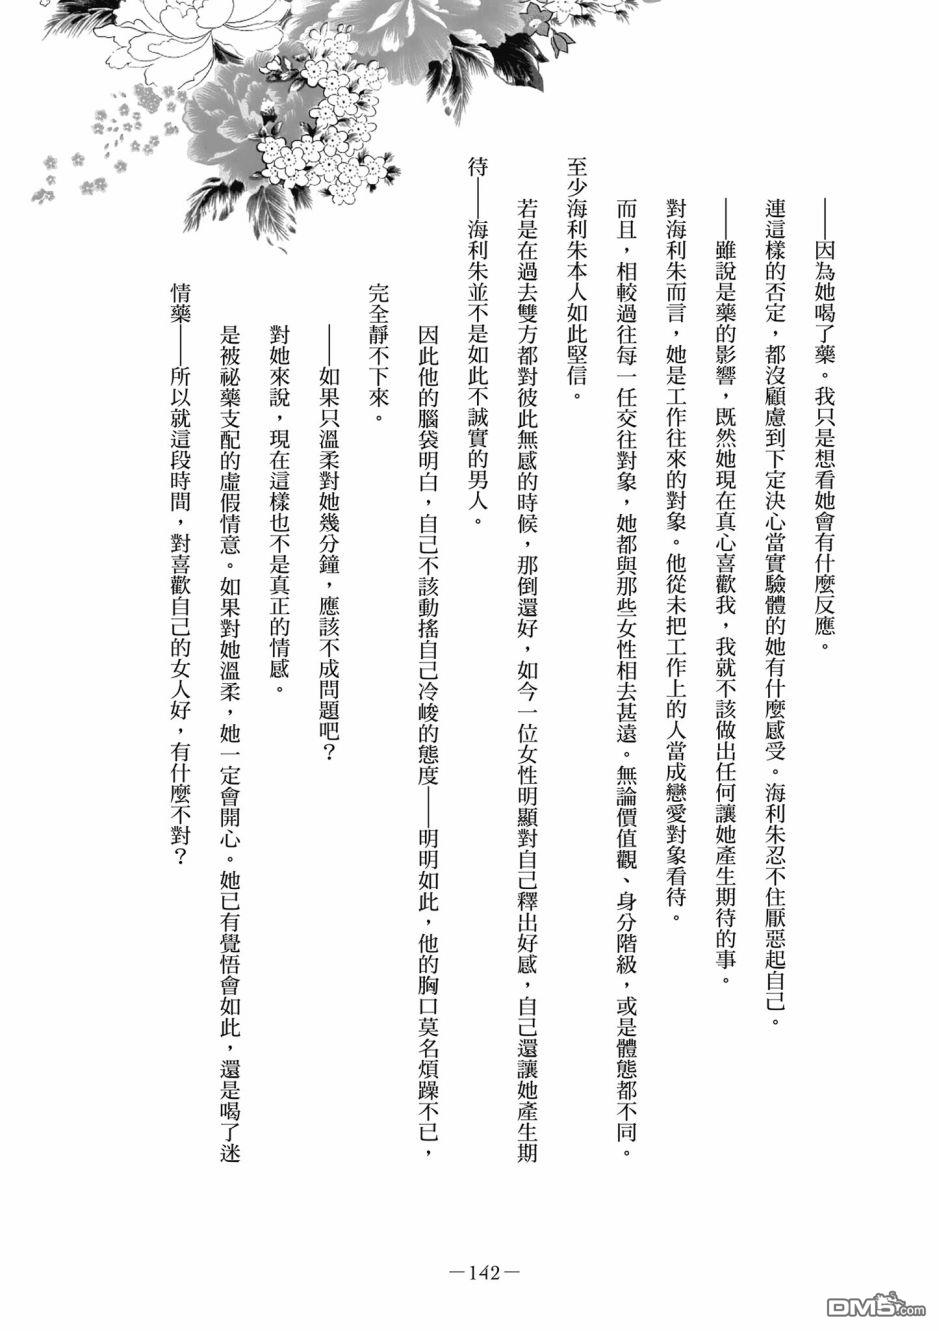 ——因為她喝了藥。我只是想看她會有什麼反應。
連這樣的否定，都沒顧慮到下定決心當實驗體的她有什麼感受。海利朱忍不住厭惡起自己。
——雖說是藥的影響，既然她現在真心喜歡我，我就不該做出任何讓她產生期待的事。
對海利朱而言，她是工作往來的對象。他從未把工作上的人當成戀愛對象看待。
而且，相較過往每一任交往對象，她都與那些女性相去甚遠。無論價值觀、身分階級，或是體態都不同。
至少海利朱本人如此堅信。
若是在過去雙方都對彼此無感的時候，那倒還好，如今一位女性明顯對自己釋出好感，自己還讓她產生期
待——海利朱並不是如此不誠實的男人。
因此他的腦袋明白，自己不該動搖自己冷峻的態度——明明如此，他的胸口莫名煩躁不已，
完全靜不下來。
——如果只溫柔對她幾分鐘，應該不成問題吧？
對她來說，現在這樣也不是真正的情感。
是被祕藥支配的虛假情意。如果對她溫柔，她一定會開心。她已有覺悟會如此，還是喝了迷
情藥——所以就這段時間，對喜歡自己的女人好，有什麼不對？
—142—
DM5.com